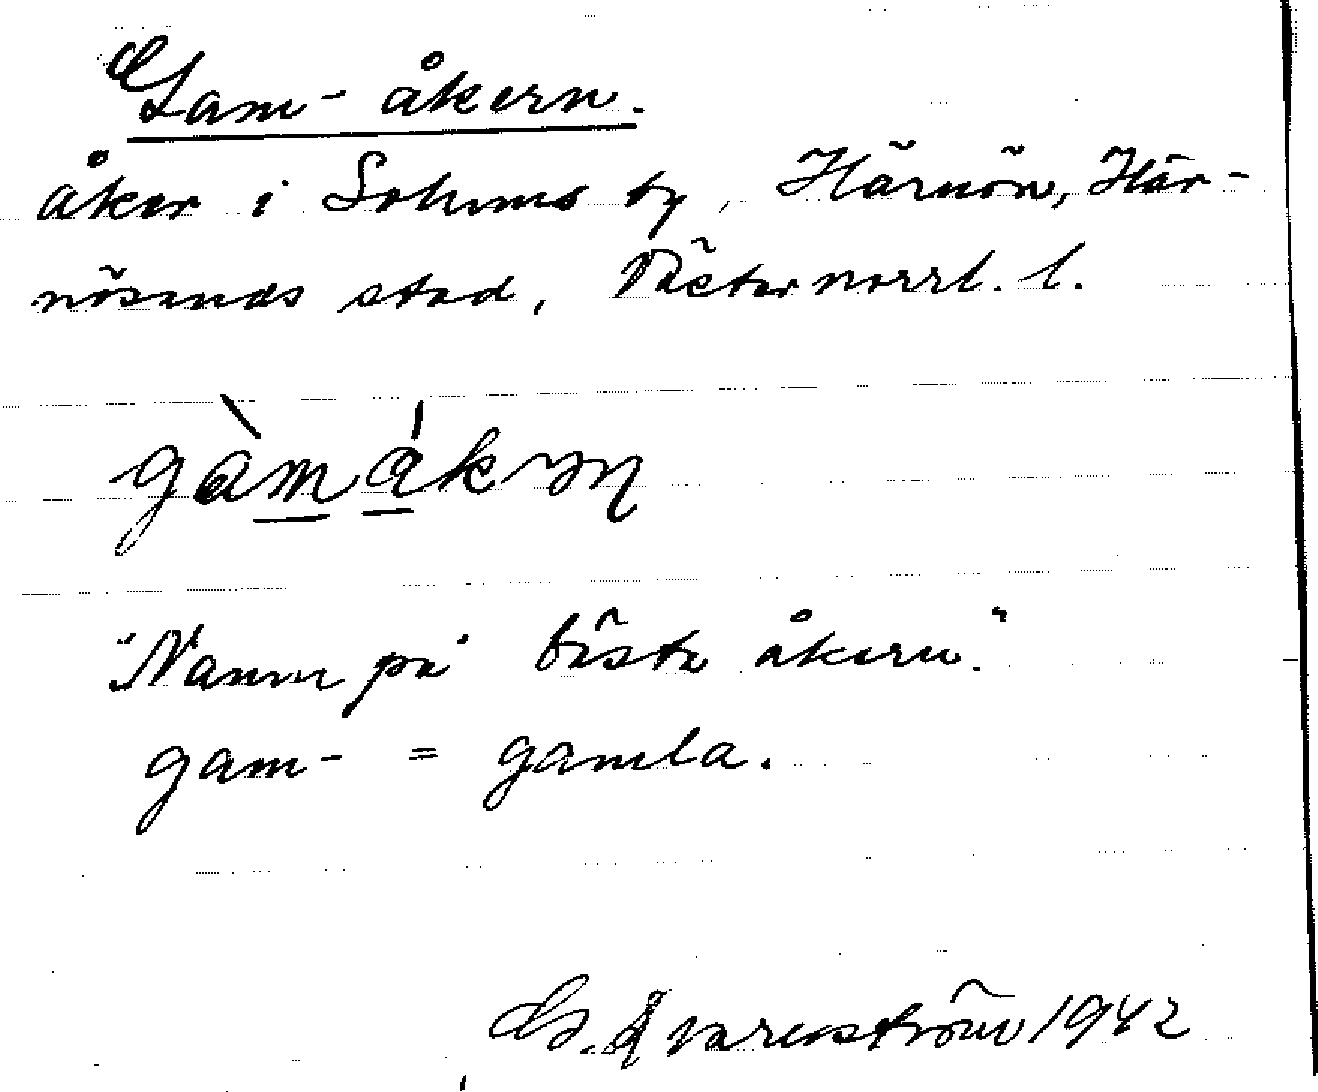 Gam-åkern.
åker i by, Härnön, Här-
nösands stad, Västernorrl. l.
gàmákṛṇ
"Namn på bästa åkern."
gam- = gamla.
G. Qvarnström 1942